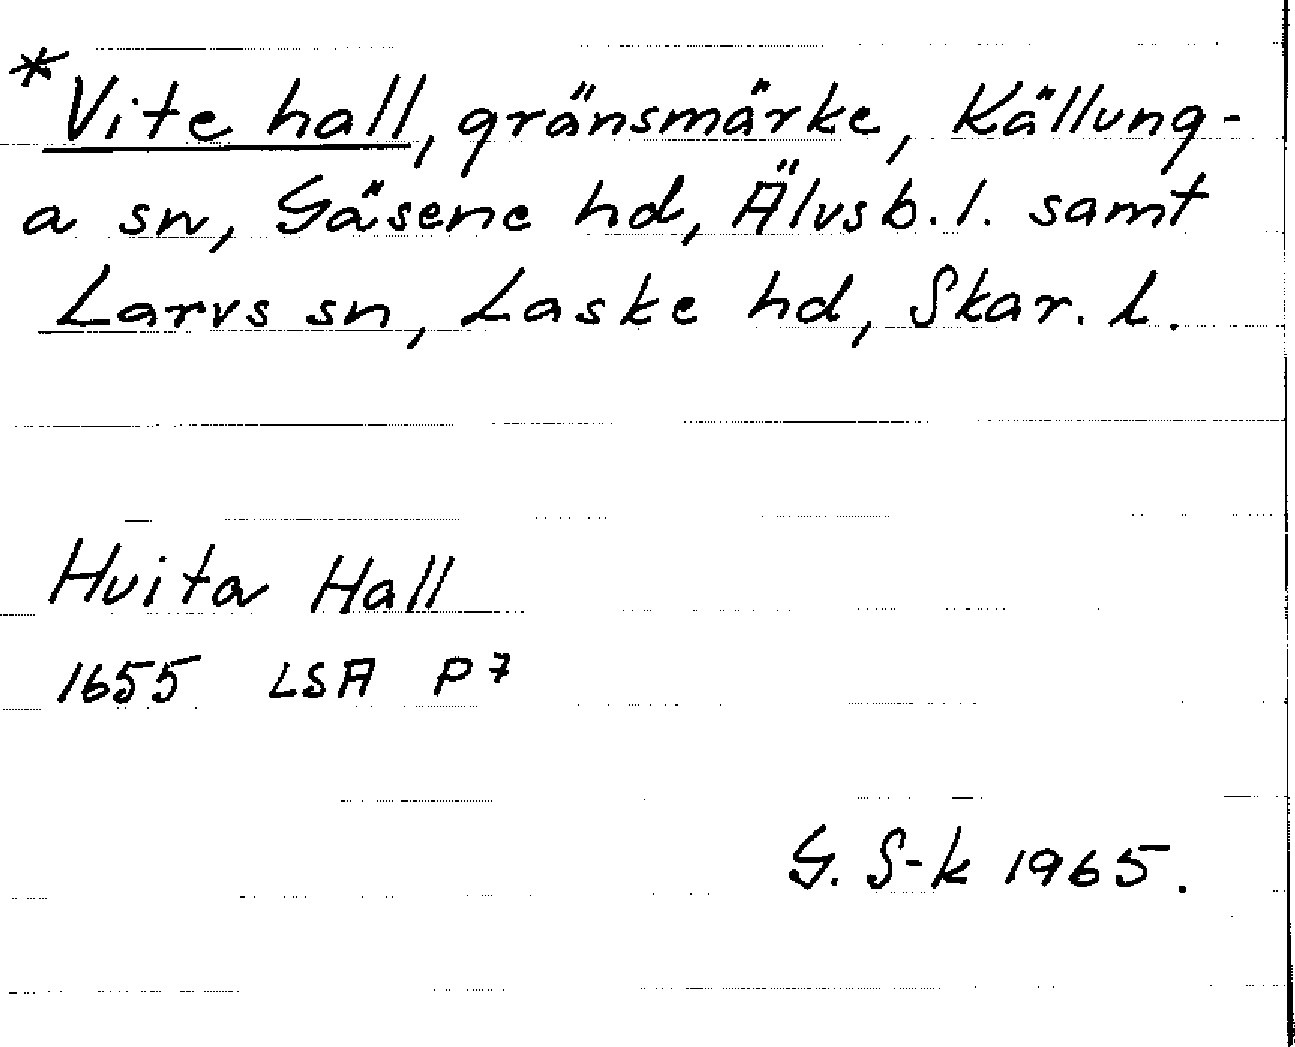 *Vite hall, gränsmärke, Källung-
a sn, Gäsene hd, Älvsb. l. samt
Larvs sn, Laske hd, Skar. l.
Huita Hall
1655 LSA P7
G. S-k 1965.